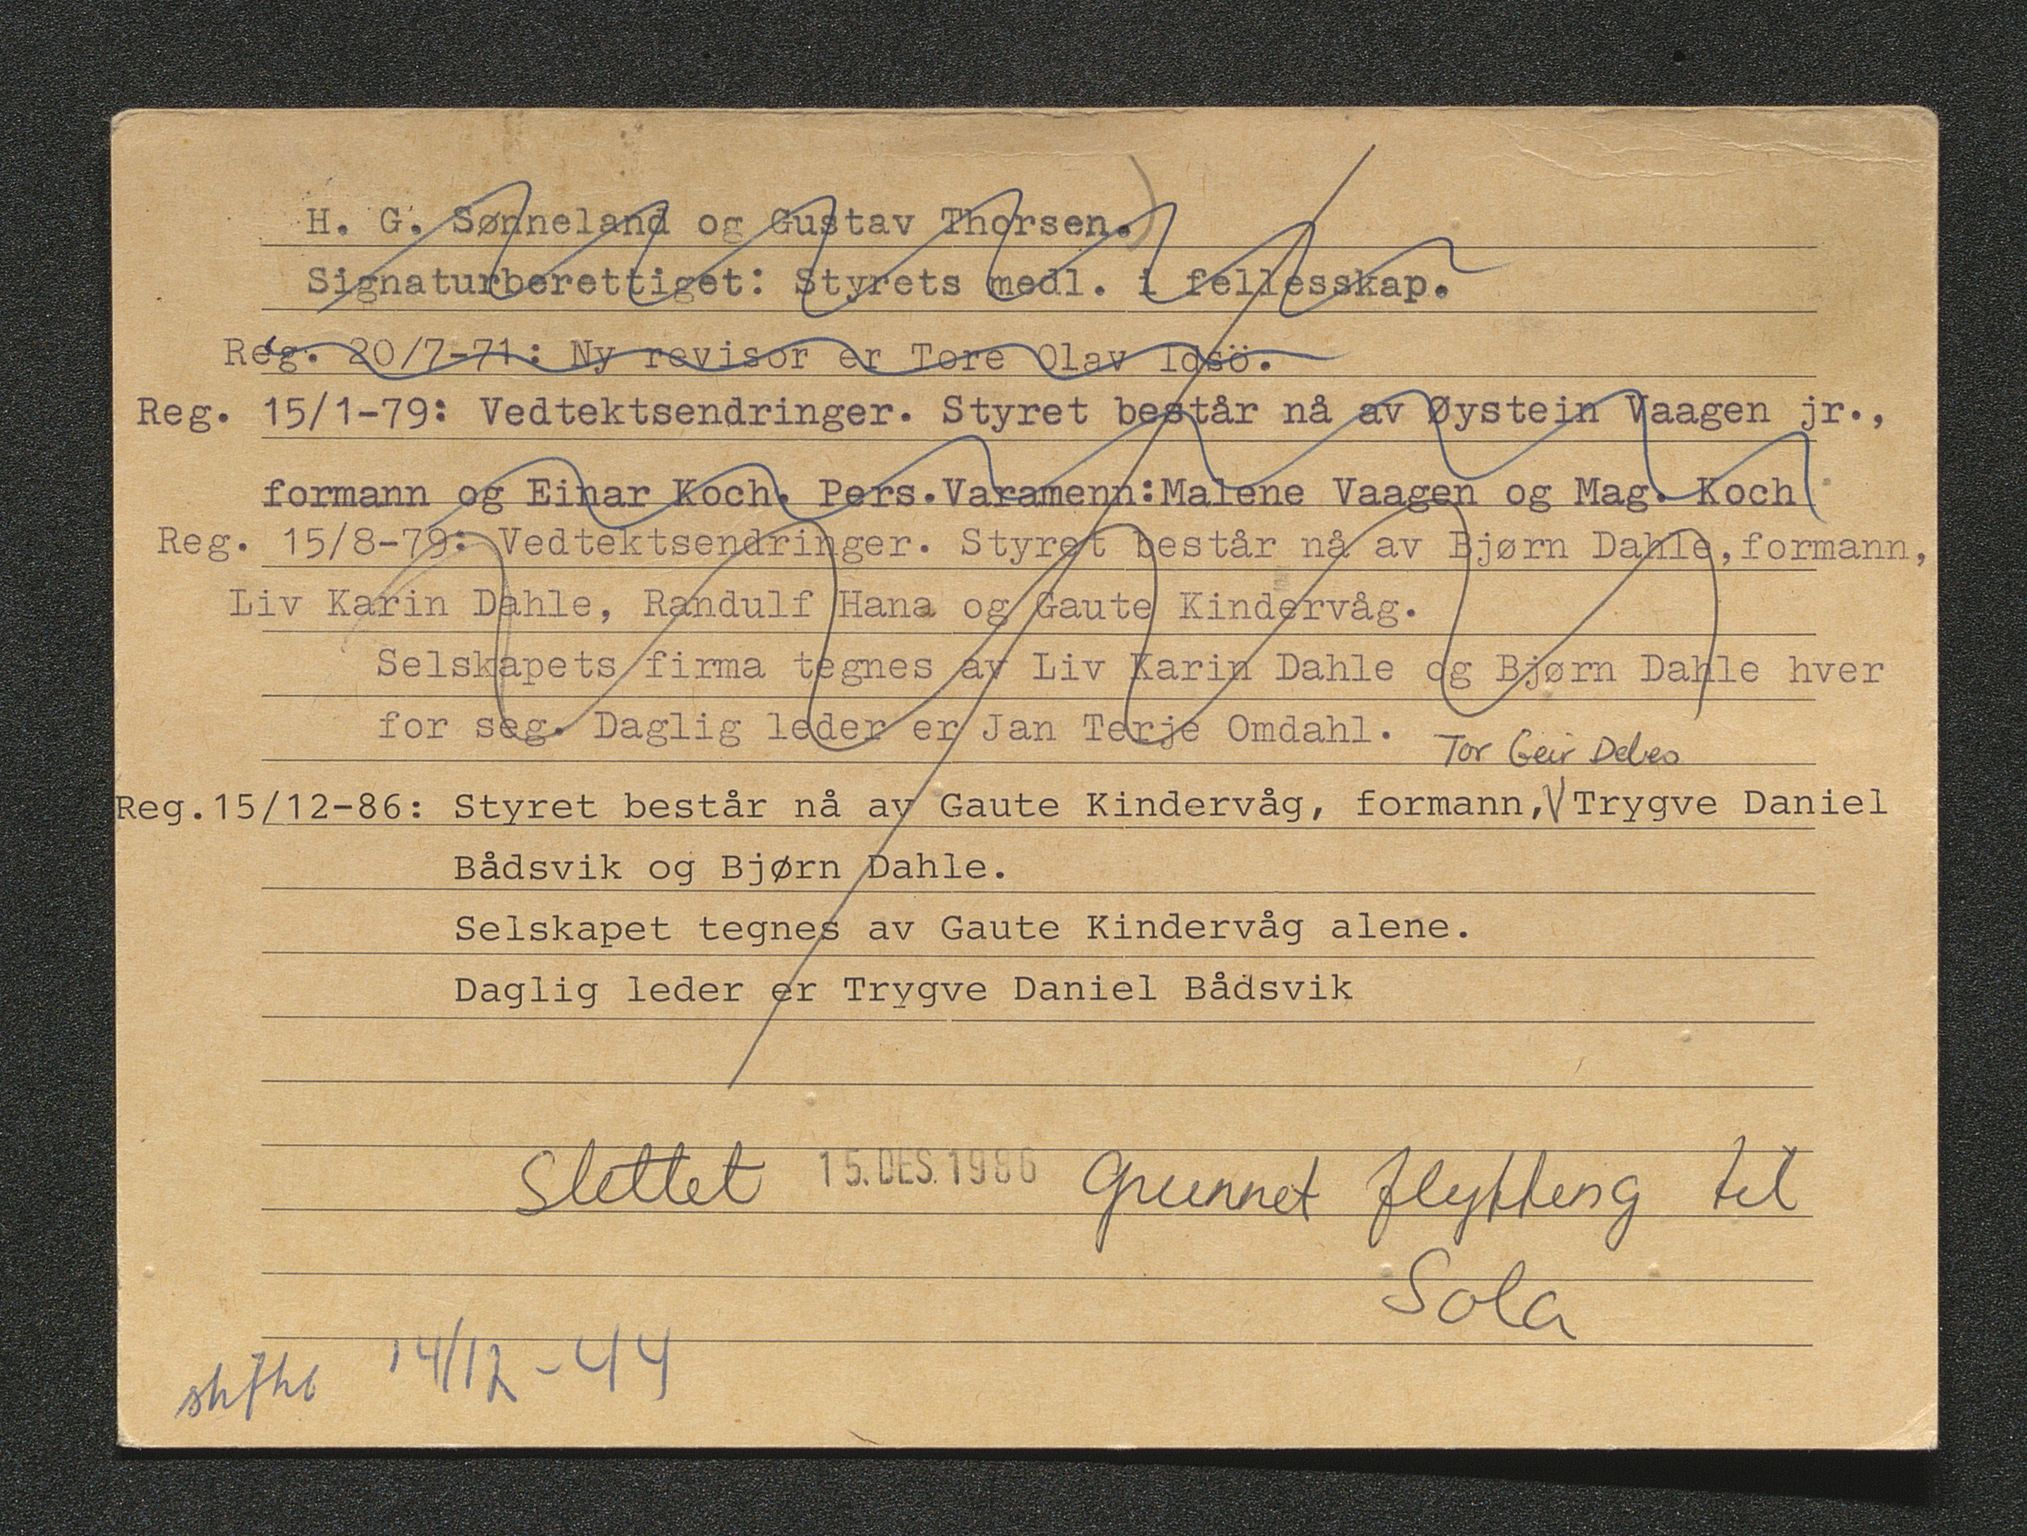 H. G. Sønneland og Gustav Thorsen.)
Signaturberettiget: Styrets medl. i fellesskap.
Reg. 20/7-71: Ny revisor er Tore Olav Idsö.
Reg. 15/1-79: Vedtektsendringer. Styret består nå av Øystein Vaagen jr.,
formann og Einar Koch. Pers.Varamenn:Malene Vaagen og Mag. Koch
Reg. 15/8-79: Vedtektsendringer. Styret består nå av Bjørn Dahle,formann,
Liv Karin Dahle, Randulf Hana og Gaute Kindervåg.
Selskapets firma tegnes av Liv Karin Dahle og Bjørn Dahle hver
for seg. Daglig leder er Jan Terje Omdahl.
Tor Geir Debes
Reg.15/12-86: Styret består nå av Gaute Kindervåg, formann, Trygve Daniel
Bådsvik og Bjørn Dahle.
Selskapet tegnes av Gaute Kindervåg alene.
Daglig leder er Trygve Daniel Bådsvik
Slettet 15. DES. 1986 Grunnet flytting til
Sola
14/12-44